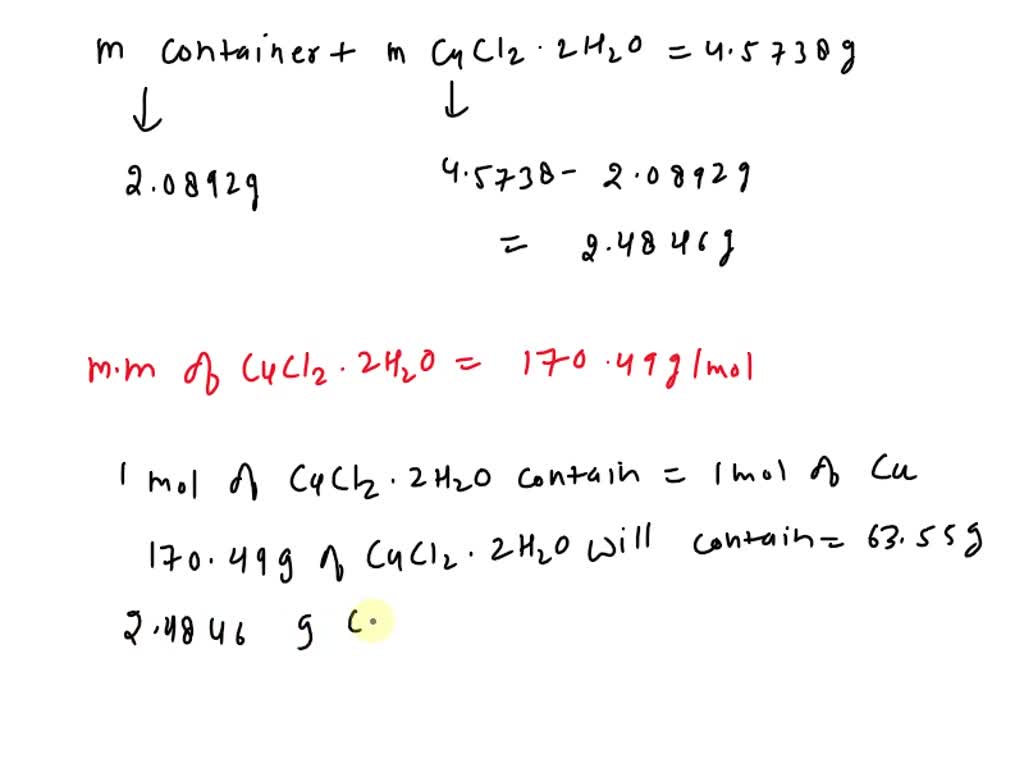 m container + m CuCl2 · 2H2O = 4.5738g
↓ ↓
2.0892g 4.5738 - 2.0892g
= 2.4846g
m.m of CuCl2 . 2H2O = 170.49g/mol
1 mol of CuCl2 . 2H2O contain = 1mol of Cu
170.49g of CuCl2 . 2H2O will contain = 63.55g
2.4846 g C